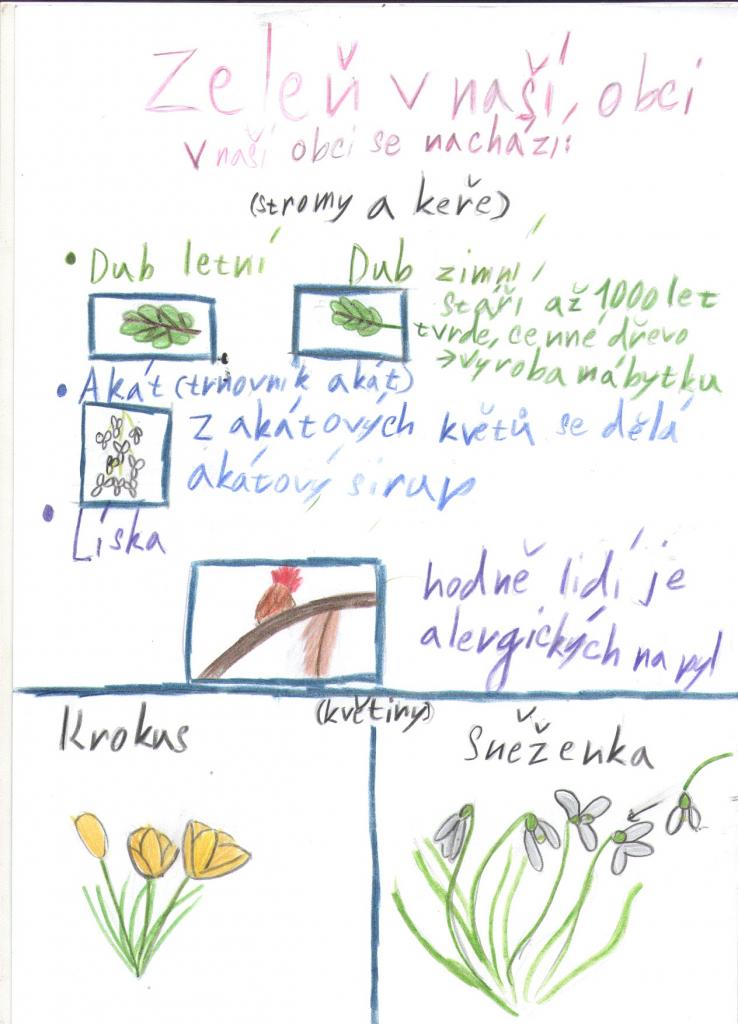 Zeleň v naší obci
V naší obci se nachází:
(stromy a keře)
• Dub letní
Dub zimní
stáří až 1000 let
tvrde, cenné dřevo
→ vyroba nábytku
• Akát (trnovník akát)
z akátových květů se dělá
akátový sirup
• Líska
hodně lidí je
alergických na pyl
(květiny)
Krokus
Sněženka